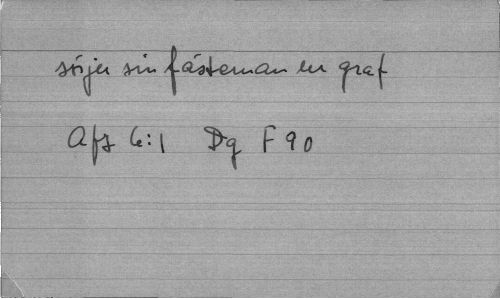 sörjer sin fästeman en graf
Afz 6:1 Dg F 90